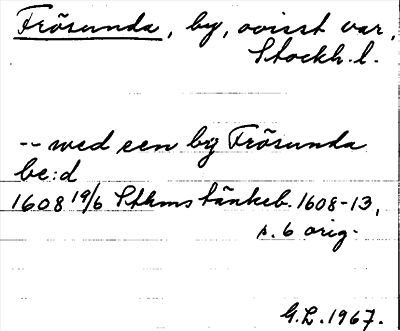 Frösunda, by, ovisst var,
Stockh. l.
-- wed een by Frösunda
be:d
1608 19/6 Sthms tänkeb. 1608-13,
s. 6 orig.
G.L. 1967.